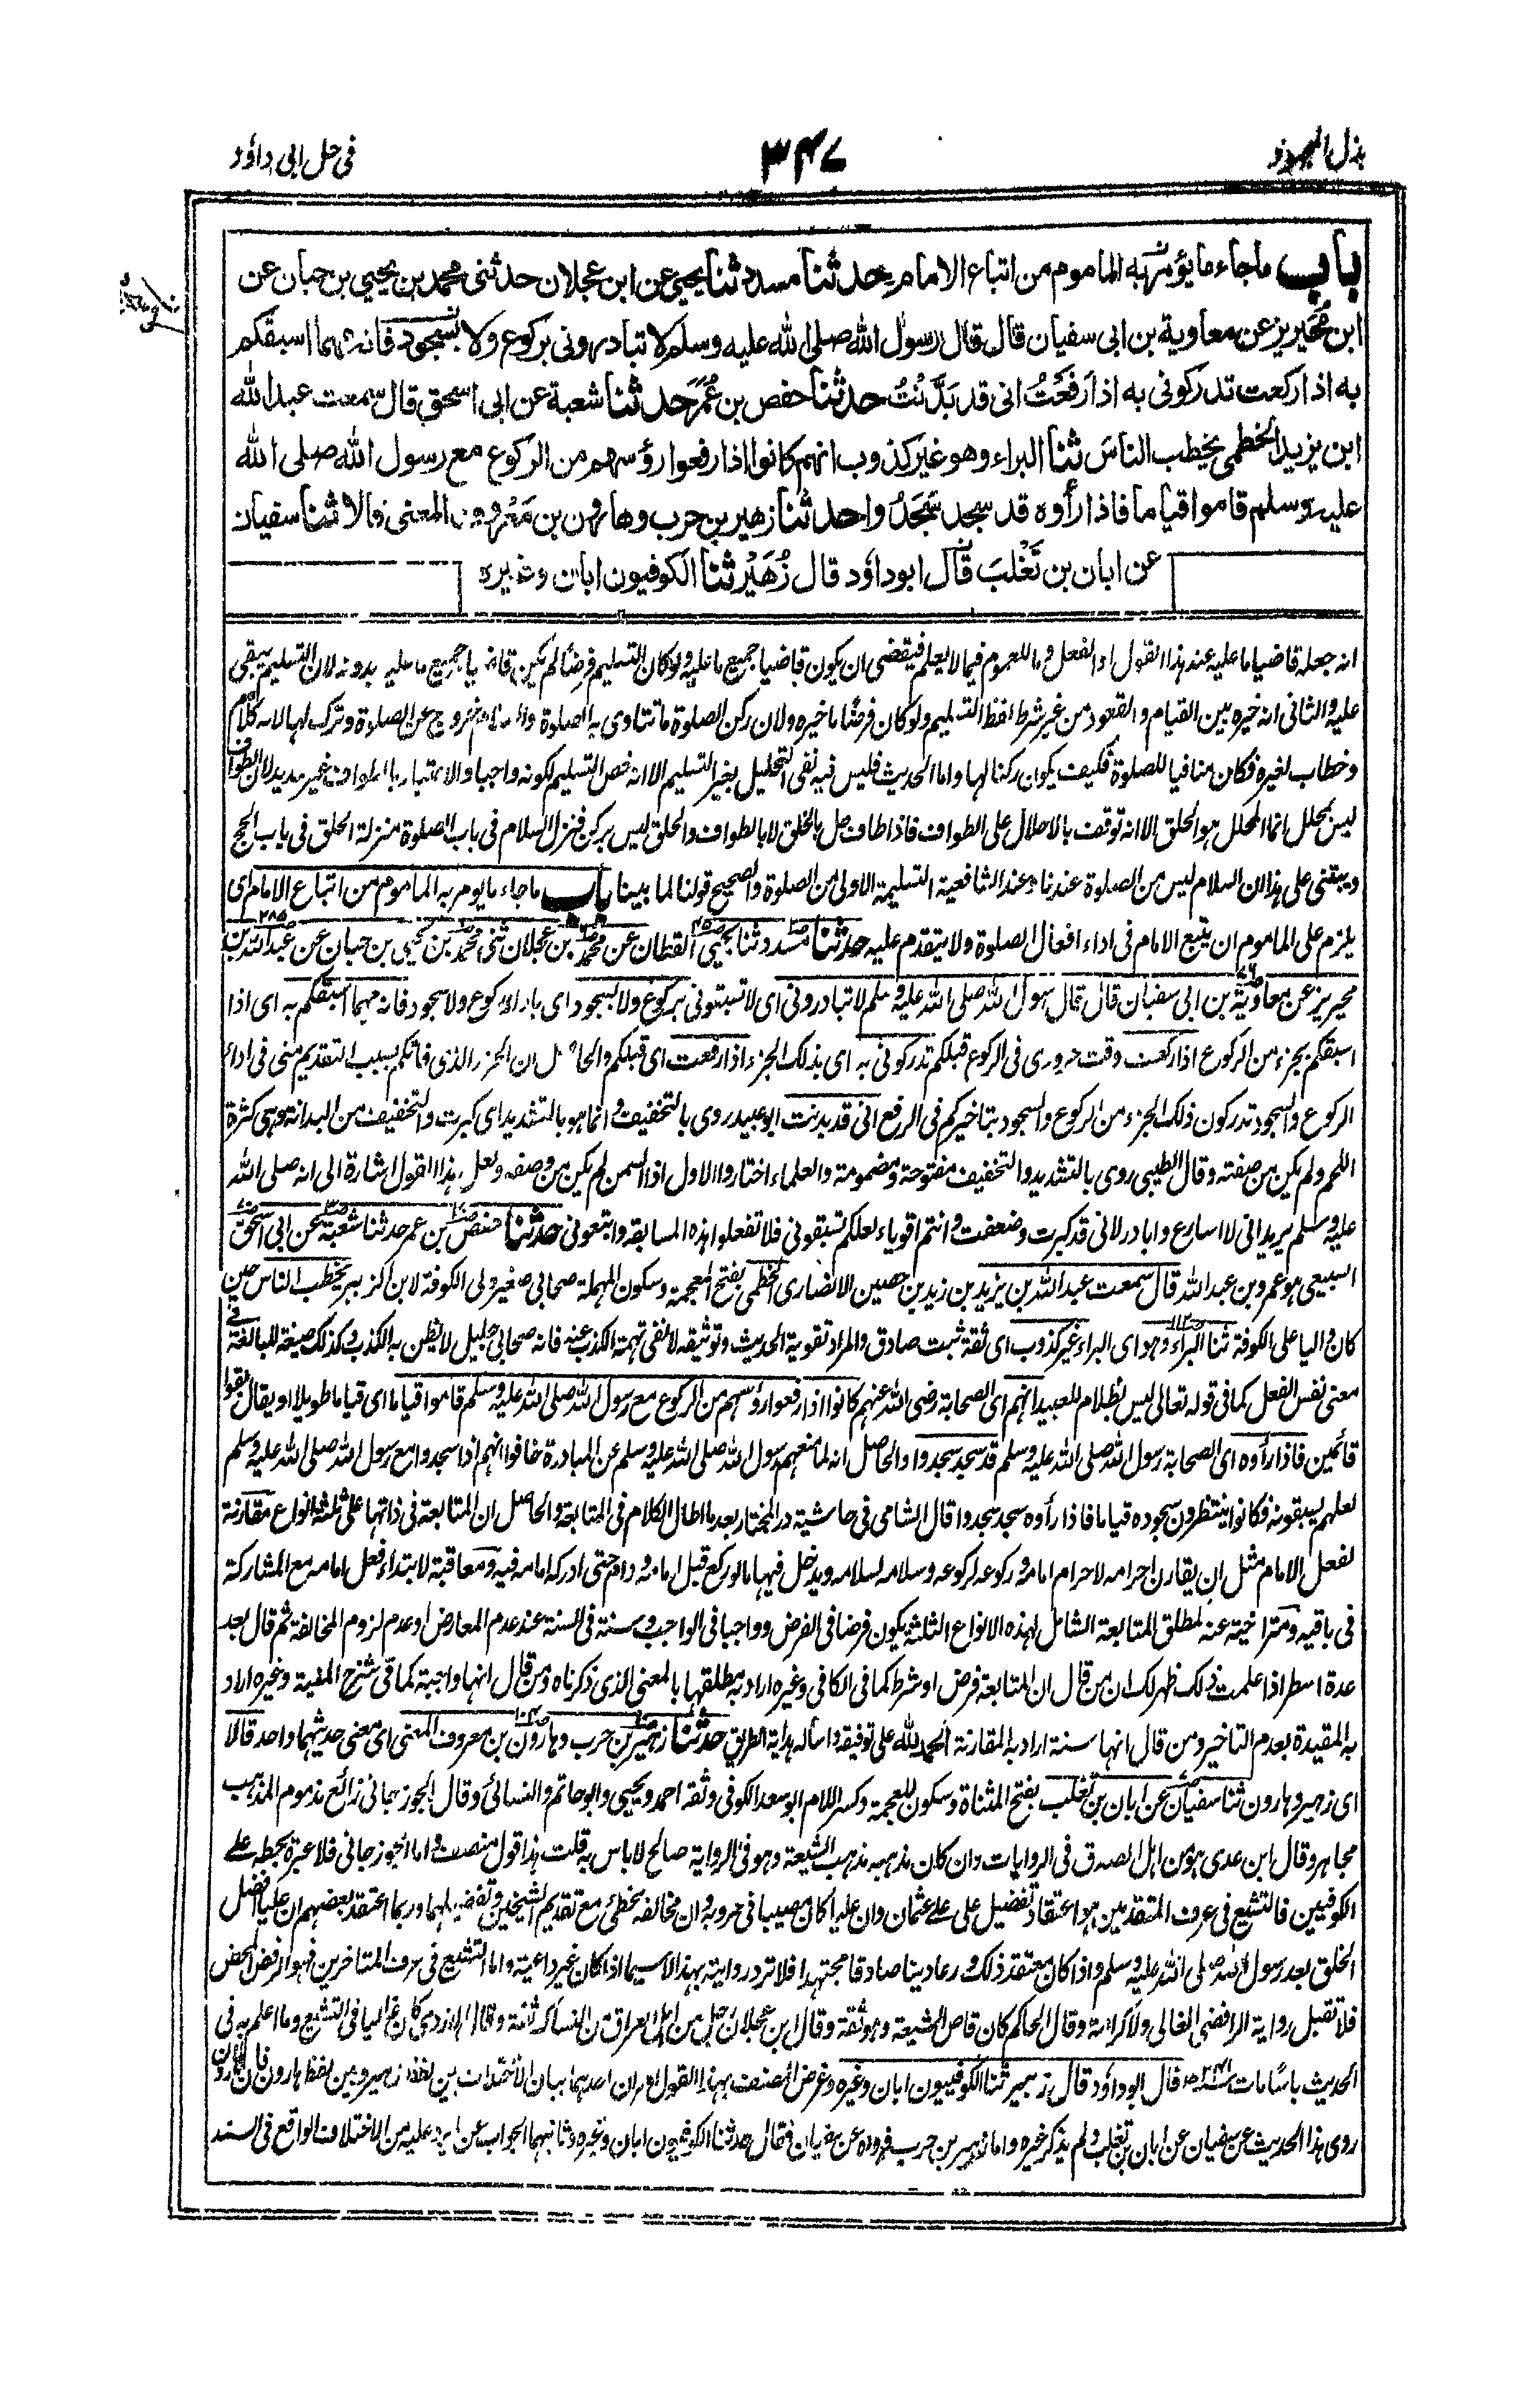 بذل المجهود
٣٤٧
فى حل ابى داؤد
باب ماجاء ما يؤمر به الماموم من اتباع الامام حدثنا مسدد ثنا يحيى عن ابن عجلان حدثنى محمد بن يحيى بن حبان عن
ابن مُحَيريز عن معاوية بن ابى سفيان قال قال رسول الله صلى الله عليه وسلم لا تبادرونى بركوع ولا بسجود فانه مهما اسبقكم
به اذا ركعت تدركونى به اذا رَفَعْتُ انى قد بَدَّنْتُ حدثنا حفص بن عُمَر حدثنا شعبة عن ابى اسحق قال سمعت عبد الله
ابن يزيد الخطمى يخطب الناس ثنا البراء وهو غير كذوب انهم كانوا اذا رفعوا رؤسهم من الركوع مع رسول الله صلى الله
عليه وسلم قاموا قياما فاذا رأوه قد سجد سَجَدُوا حدثنا زهير بن حرب وهارون بن مَعْرُوف المعنى قالا ثنا سفيان
عن ابان بن تَغْلِبَ قال ابو داؤد قال زُهَيْر ثنا الكوفيون ابان وغيره
انه جعله قاضيا ما عليه عند هذا القول او الفعل وما للعموم فيما لا يعلم فيقضى ان يكون قاضيا جميع ما عليه ولو كان التسليم فرضا لم يكن قاضيا جميع ما عليه بدونه لان التسليم يبقى
عليه والثانى انه خيره بين القيام والقعود من غير شرط لفظ التسليم ولو كان فرضا ما خيره ولان ركن الصلوة ما تتادى به الصلوة والسلام خروج عن الصلوة وترك لها لانه كلام
وخطاب لغيره فكان منافيا للصلوة فكيف يكون ركنا لها واما الحديث فليس فيه نفى التحليل بغير التسليم الا انه خص التسليم لكونه واجبا والاعتبار بالطواف غير سديد لان الطواف
ليس بمحلل انما المحلل هو الحلق الا انه توقف بالاحلال على الطواف فاذا طاف حل بالحلق لا بالطواف والحلق ليس بركن فنزل السلام فى باب الصلوة منزلة الحلق فى باب الحج
ويبتنى على هذا ان السلام ليس من الصلوة عندنا وعند الشافعية التسليمة الاولى من الصلوة والصحيح قولنا لما بينا باب ماجاء ما يومر به الماموم من اتباع الامام اى
يلزم على الماموم ان يتبع الامام فى اداء افعال الصلوة ولا يتقدم عليه حدثنا مسدد ثنا يحيى القطان عن محمد بن عجلان ثنى محمد بن يحيى بن حبان عن عبد الله بن
محيريز عن معاوية بن ابى سفيان قال قال رسول الله صلى الله عليه وسلم لا تبادرونى اى لا تسبقونى بركوع ولا بسجود اى باداء ركوع ولا سجود فانه مهما اسبقكم به اى اذا
اسبقكم بجزء من الركوع اذا ركعت وقت خرورى فى الركوع قبلكم تدركونى به اى بذلك الجزء اذا رفعت اى قبلكم والحاصل ان الجزء الذى فاتكم بسبب التقديم منى فى اداء
الركوع والسجود تدركون ذلك الجزء من الركوع والسجود بتاخيركم فى الرفع انى قد بدنت ابو عبيد روى بالتخفيف وانما هو بالتشديد اى كبرت والتخفيف من البدانة وهى كثرة
اللحم ولم يكن من صفته وقال الطيبى روى بالتشديد والتخفيف مفتوحة ومضمومة والعلماء اختاروا الاول اذ السمن لم يكن من وصفه ولعل هذا القول اشارة الى انه صلى الله
عليه وسلم يريد انى لا اسارع وابادر لانى قد كبرت وضعفت وانتم اقوياء لعلكم تسبقونى فلا تفعلوا هذه المسابقة واتبعونى حدثنا حفص بن عمر حدثنا شعبة عن ابى اسحق
السبيعى هو عمرو بن عبد الله قال سمعت عبد الله بن يزيد بن زيد بن حصين الانصارى الخطمى بفتح المعجمة وسكون المهملة صحابى صغير ولى الكوفة لابن الزبير يخطب الناس حين
كان واليا على الكوفة ثنا البراء وهو اى البراء غير كذوب اى ثقة ثبت صادق والمراد تقوية الحديث وتوثيقه لا نفى تهمة الكذب عنه فانه صحابى جليل لا يظن به الكذب وكذلك صيغة المبالغة فى
معنى نفس الفعل كما فى قوله تعالى ليس بظلام للعبيد انهم اى الصحابة رضى الله عنهم كانوا اذا رفعوا رؤسهم من الركوع مع رسول الله صلى الله عليه وسلم قاموا قياما اى قياما طويلا او يقال بقوا
قائمين فاذا رأوه اى الصحابة رسول الله صلى الله عليه وسلم قد سجد سجدوا والحاصل انه لما منعهم رسول الله صلى الله عليه وسلم عن المبادرة خافوا انهم اذا سجدوا مع رسول الله صلى الله عليه وسلم
لعلهم يسبقونه فكانوا ينتظرون سجوده قياما فاذا رأوه سجد سجدوا قال الشامى فى حاشية در المختار بعد ما اطال الكلام فى المتابعة والحاصل ان المتابعة فى ذاتها على ثلثة انواع مقارنة
لفعل الامام مثل ان يقارن احرامه لاحرام امامه وركوعه لركوعه وسلامه لسلامه ويدخل فيها ما لو ركع قبل امامه ودام حتى ادركه امامه فيه ومعاقبة لابتداء فعل امامه مع المشاركة
فى باقيه ومتراخية عنه لمطلق المتابعة الشامل لهذه الانواع الثلثة يكون فرضا فى الفرض وواجبا فى الواجب وسنة فى السنة عند عدم المعارض وعدم لزوم المخالفة ثم قال بعد
عدة اسطر اذا علمت ذلك ظهر لك ان من قال ان المتابعة فرض او شرط كما فى الكافى وغيره اراد به مطلقها بالمعنى الذى ذكرناه ومن قال انها واجبة كما فى شرح المنية وغيره اراد
به المقيدة بعدم التاخير ومن قال انها سنة اراد به المقارنة الحمد لله على توفيقه واسأله هداية الطريق حدثنا زهير بن حرب وهارون بن معروف المعنى اى معنى حديثهما واحد قالا
اى زهير وهارون ثنا سفيان عن ابان بن تغلب بفتح المثناة وسكون المعجمة وكسر اللام ابو سعد الكوفى وثقه احمد ويحيى وابو حاتم والنسائى وقال الجوزجانى زائغ مذموم المذهب
مجاهر وقال ابن عدى هو من اهل الصدق فى الروايات وان كان مذهبه مذهب الشيعة وهو فى الرواية صالح لا باس به قلت هذا قول منصف واما الجوزجانى فلا عبرة بحطه على
الكوفيين فالتشيع فى عرف المتقدمين هو اعتقاد تفضيل على على عثمان وان عليا كان مصيبا فى حروبه وان مخالفه مخطئ مع تقديم الشيخين وتفضيلهما وربما اعتقد بعضهم ان عليا افضل
الخلق بعد رسول الله صلى الله عليه وسلم واذا كان معتقد ذلك ورعا دينا صادقا مجتهدا فلا ترد روايته بهذا لا سيما اذا كان غير داعية واما التشيع فى عرف المتاخرين فهو الرفض المحض
فلا تقبل رواية الرافضى الغالى ولا كرامة وقال الحاكم كان قاص الشيعة وهو ثقة وقال ابن عجلان رجل من اهل العراق من النساك ثقة وقال الازدى كان غاليا فى التشيع وما اعلم به فى
الحديث باسا مات قال ابو داؤد قال زهير ثنا الكوفييون ابان وغيره وغرض المصنف بهذا القول امران احدهما بيان الاختلاف بين لفظ زهير وبين لفظ هارون فان هارون
روى هذا الحديث عن سفيان عن ابان بن تغلب ولم يذكر غيره واما زهير بن حرب فروه عن سفيان فقال حدثنا الكوفيون ابان وغيره وثانيهما الجواب عن ايرد عليه من الاختلاف الواقع فى السند